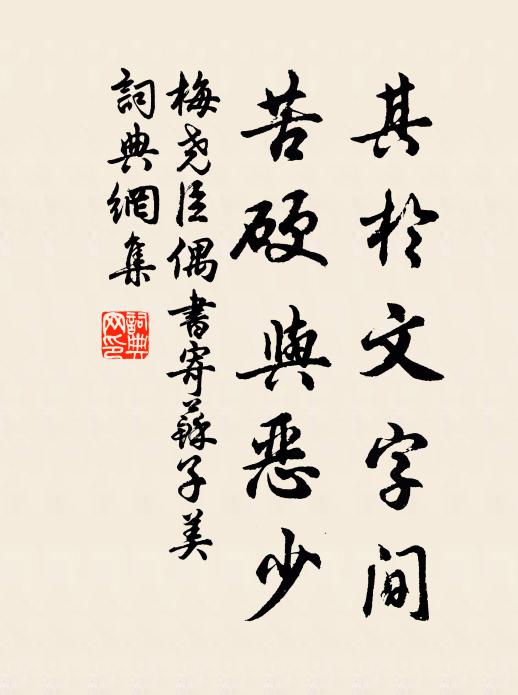 其於文字間
苦硬與惡少
梅堯臣偶書寄蘇子美
詞典網集
詞典網印